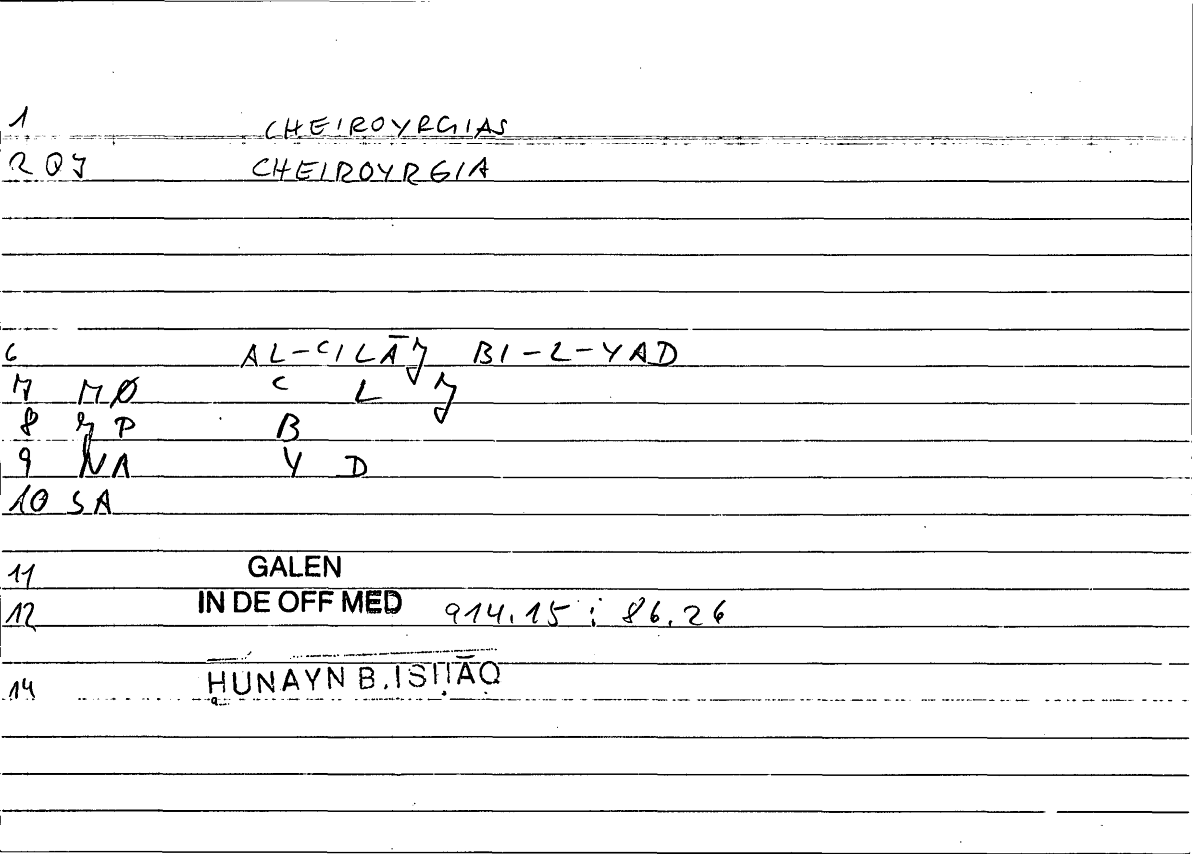 1 CHEIROYRGIAS
2 QJ CHEIROYRGIA
6 AL-CILĀJ BI-L-YAD
7 MØ C L J
8 JP B
9 NA Y D
10 SA
11 GALEN
12 IN DE OFF MED 914.15 ; 86.26
14 ḤUNAYN B. ISḤĀQ